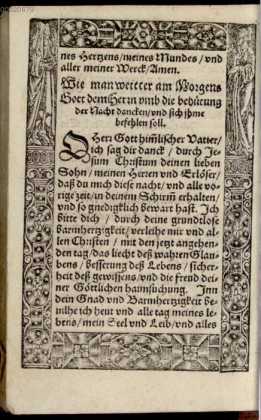 nes Hertzens/meines Mundes/vnd
aller meiner Werck/Amen.
Wie man weitter am Morgens
Gott dem Herrn vmb die behütung
der Nacht dancken/vnd sich jhme
befehlen soll.
O Herr Gott him̃lischer Vatter/
ich sag dir danck / durch Je-
sum Christum deinen lieben
Sohn/meinen Herren vnd Erlöser/
daß du mich diese nacht/vnd alle vo-
rige zeit/in deinem Schirm̃ erhalten/
vnd so gnediglich bewart hast. Ich
bitte dich / durch deine grundtlose
barmhertzigkeit/verleihe mir vnd al-
len Christen / mit den jetzt angehen-
den tag/das liecht deß wahren Glau-
bens / besserung deß Lebens / sicher-
heit deß gewissens/vnd die freud dei-
ner Göttlichen haimsuchung. Inn
dein Gnad vnd Barmhertzigkeit be-
uilhe ich heut vnd alle tag meines le-
bens/mein Seel vnd Leib/vnd alles